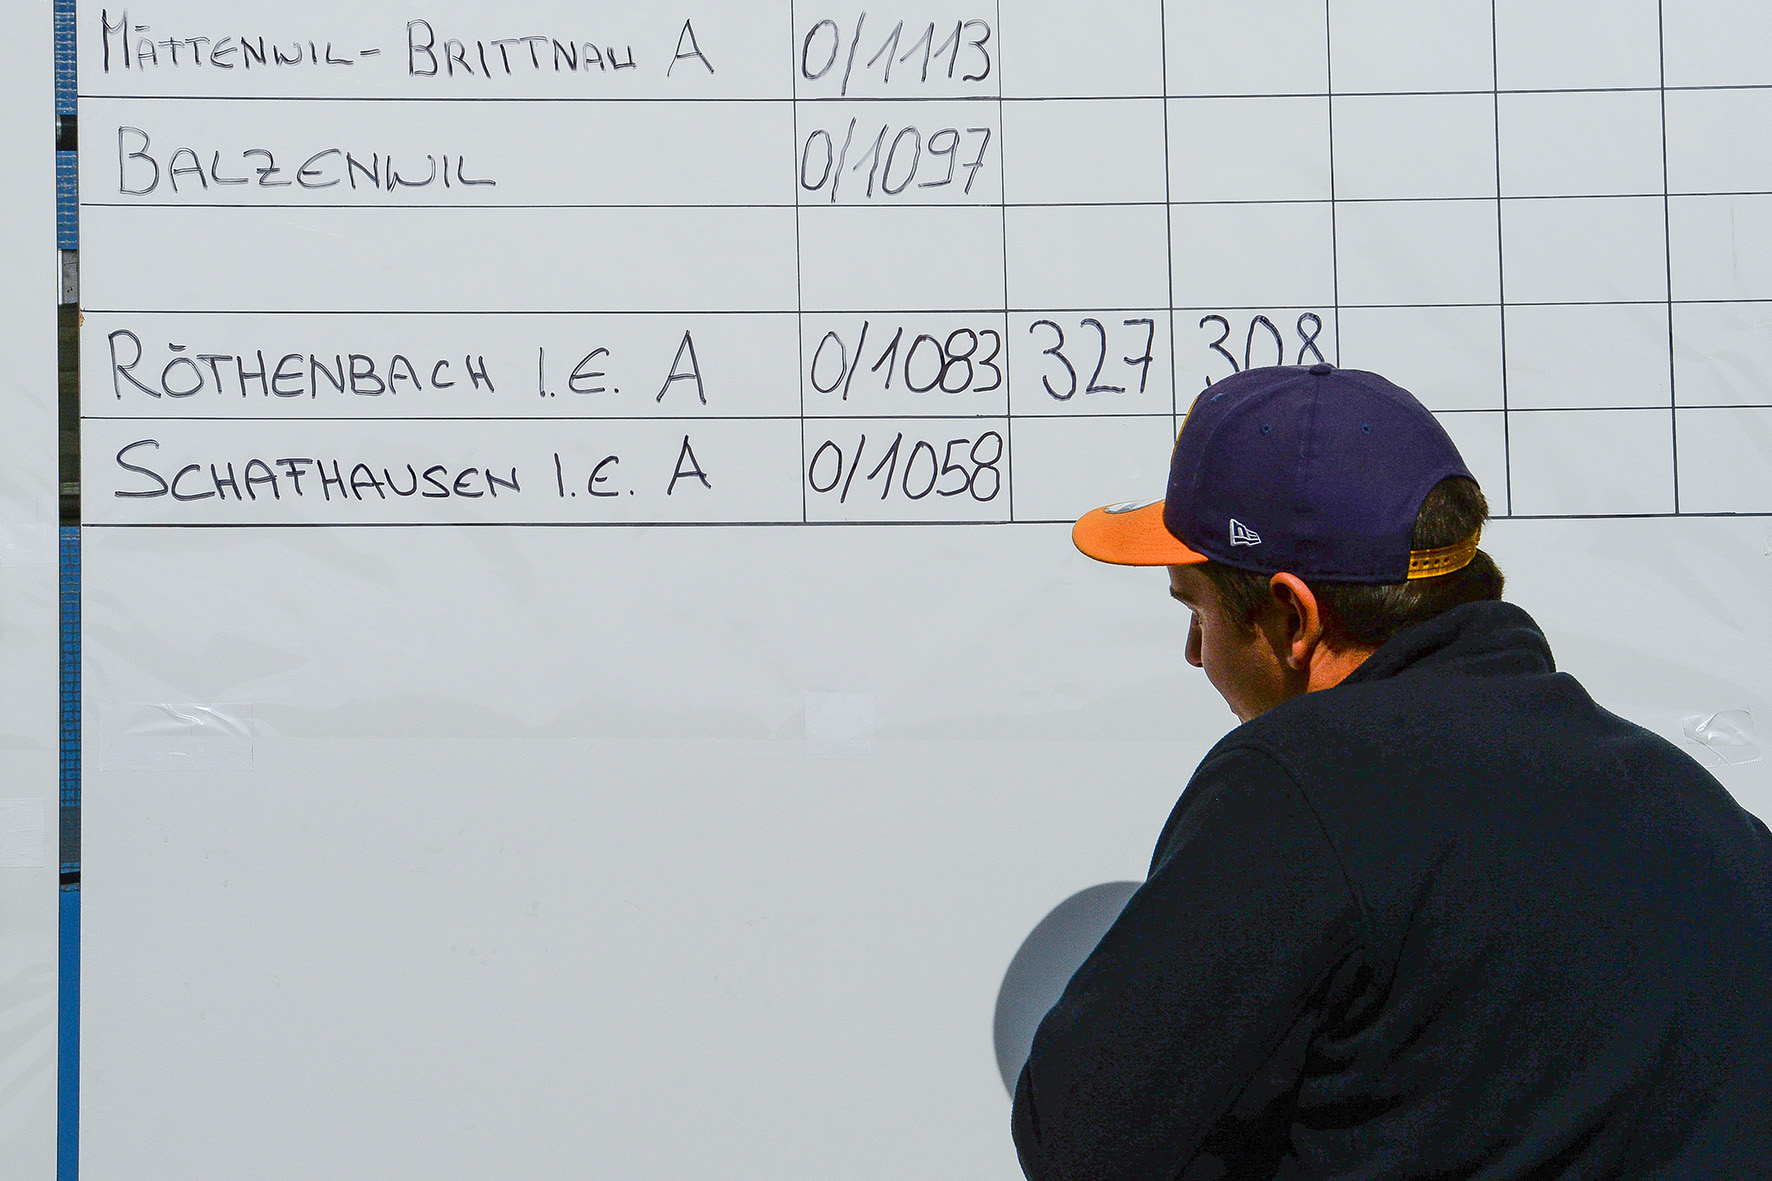 MÄTTENWIL-BRITTNAU A 0/1113
BALZENWIL 0/1097
RÖTHENBACH I.E. A 0/1083 327 308
SCHAFHAUSEN I.E. A 0/1058